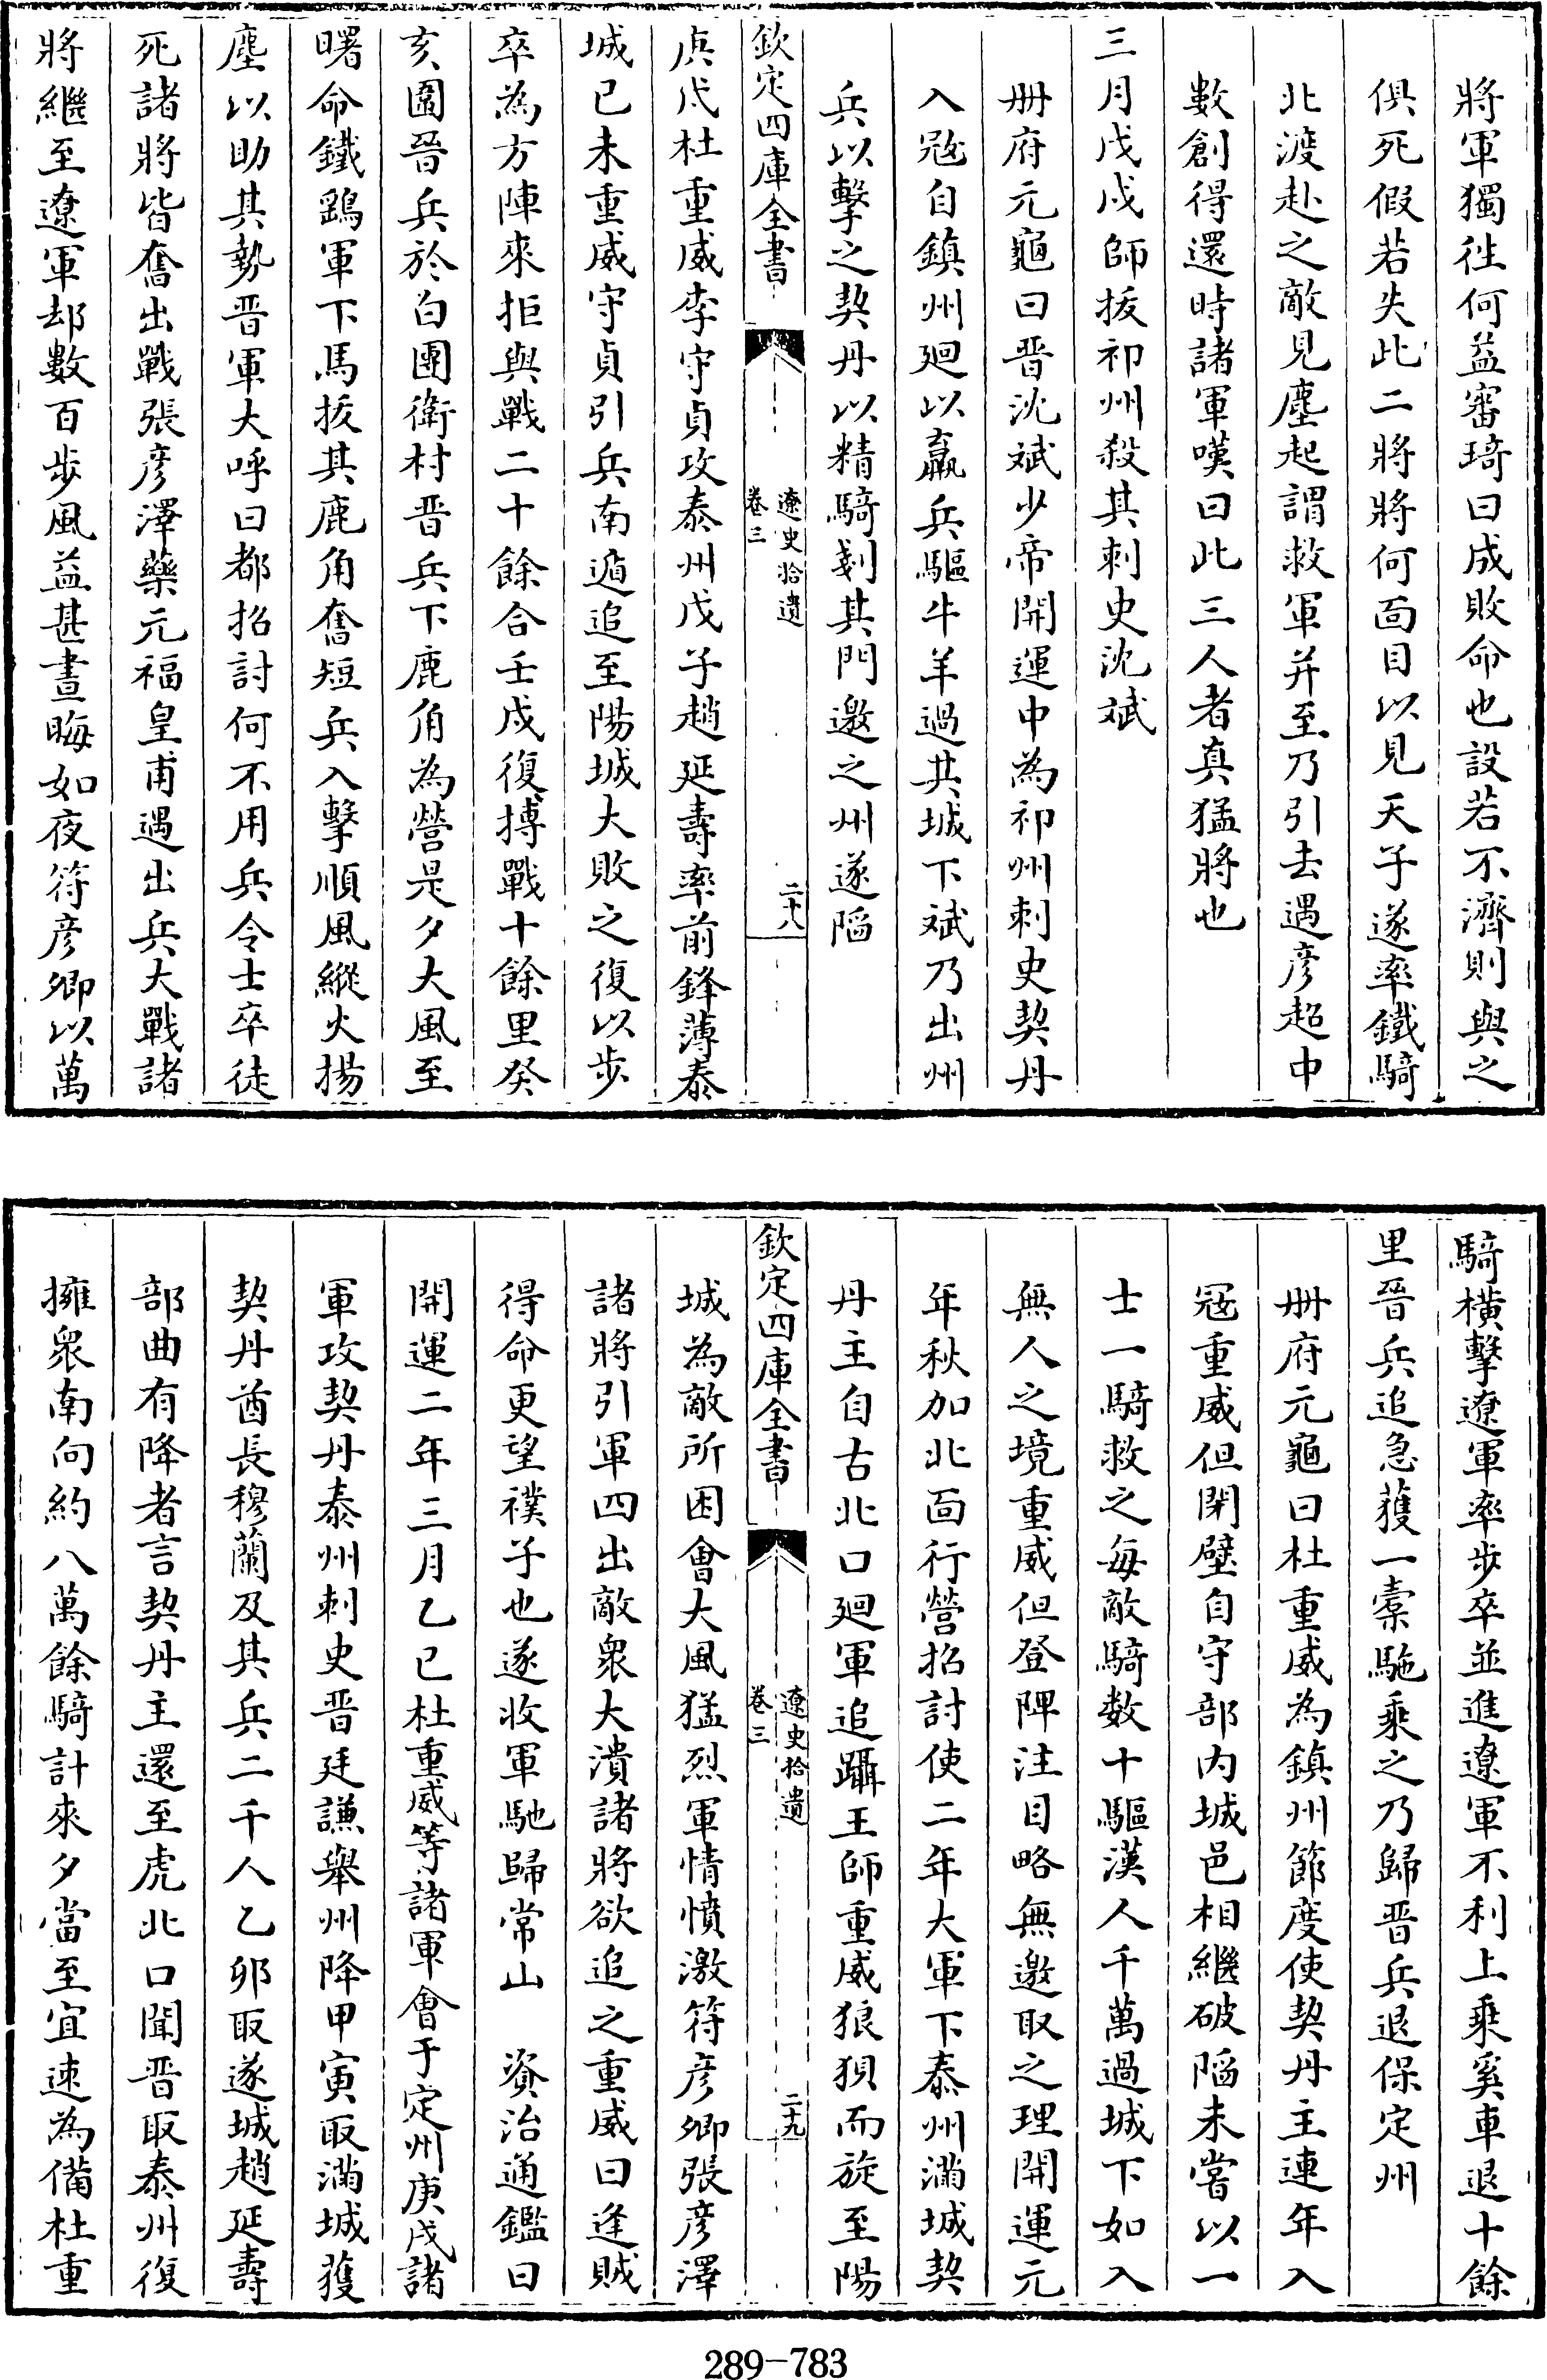 將軍獨往何益審琦曰成敗命也設若不濟則與之
俱死假若失此二將將何面目以見天子遂率鐵騎
北渡赴之敵見塵起謂救軍并至乃引去遇彦超中
數創得還時諸軍嘆曰此三人者真猛將也
三月戊戌師拔祁州殺其刺史沈斌
册府元龜曰晋沈斌少帝開運中為祁州刺史契丹
入宼自鎮州廻以羸兵驅牛羊過其城下斌乃出州
兵以擊之契丹以精騎剗其門邀之州遂䧟
欽定四庫全書
遼史拾遺
卷三
二十八
庚戌杜重威李守貞攻泰州戊子趙延壽率前鋒薄泰
城已未重威守貞引兵南遁追至陽城大敗之復以步
卒為方陣來拒與戰二十餘合壬戌復搏戰十餘里癸
亥圍晉兵於白團衛村晋兵下鹿角為營是夕大風至
曙命鐵鷂軍下馬拔其鹿角奮短兵入擊順風縱火揚
塵以助其勢晋軍大呼曰都招討何不用兵令士卒徒
死諸將皆奮出戰張彦澤藥元福皇甫遇出兵大戰諸
將繼至遼軍却數百步風益甚晝晦如夜符彦卿以萬
騎橫擊遼軍率步卒並進遼軍不利上乘奚車退十餘
里晉兵追急獲一槖駞乘之乃歸晋兵退保定州
册府元龜曰杜重威為鎮州節度使契丹主連年入
冦重威但閉壁自守部内城邑相繼破䧟未嘗以一
士一騎救之每敵騎数十驅漢人千萬過城下如入
無人之境重威但登陴注目略無邀取之理開運元
年秋加北面行營招討使二年大軍下泰州滿城契
丹主自古北口廻軍追躡王師重威狼狽而旋至陽
欽定四庫全書
遼史拾遺
卷三
二十九
城為敵所困會大風猛烈軍情憤激符彦卿張彦澤
諸將引軍四出敵衆大潰諸將欲追之重威曰逢賊
得命更望襆子也遂收軍馳歸常山　資治通鑑曰
開運二年三月乙巳杜重威等諸軍會于定州庚戌諸
軍攻契丹泰州刺史晋廷謙舉州降甲寅取滿城獲
契丹酋長穆蘭及其兵二千人乙卯取遂城趙延壽
部曲有降者言契丹主還至虎北口聞晋取泰州復
擁衆南向約八萬餘騎計來夕當至宜速為備杜重
289-783